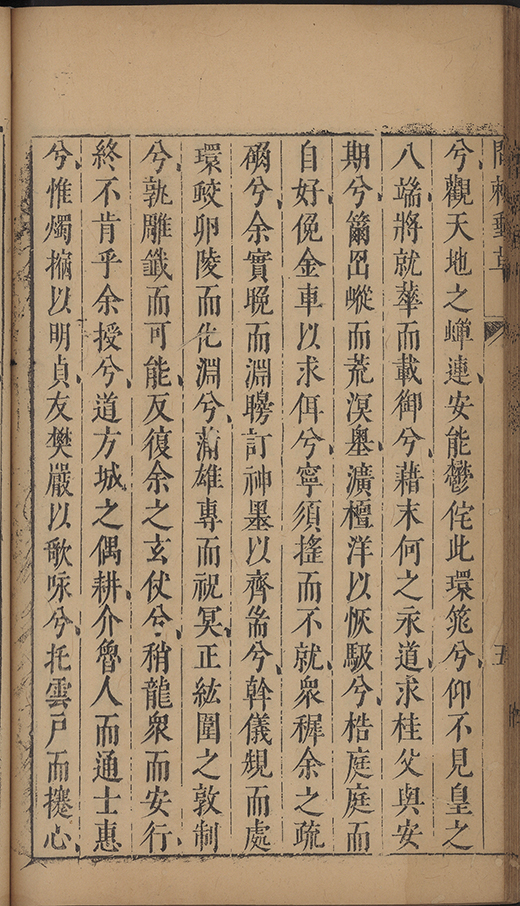 問棘郵草 五
兮觀天地之蟬連安能鬱侘此環兮仰不見皇之
八端將就華而載御兮藉末何之永道求桂父與安
期兮籋嵷而荒溟轝潢檀洋以恢馺兮梏庭庭而
自好俛金車以求佴兮寧須搖而不就衆穉余之疏
兮余實晚而淵矏訂神墨以齊耑兮幹儀規而處
環皎卵陵而化淵兮雄專而祝冥正紘圍之敦制
兮孰雕而可能反復余之玄仗兮稍龍衆而安行
終不肯乎余授兮道方城之偶耕介魯人而通士惠
兮惟燭以明貞友樊嚴以歌咏兮托雲戶而攓心